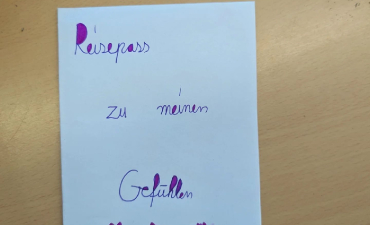 Reisepass
zu meinen
Gefühlen